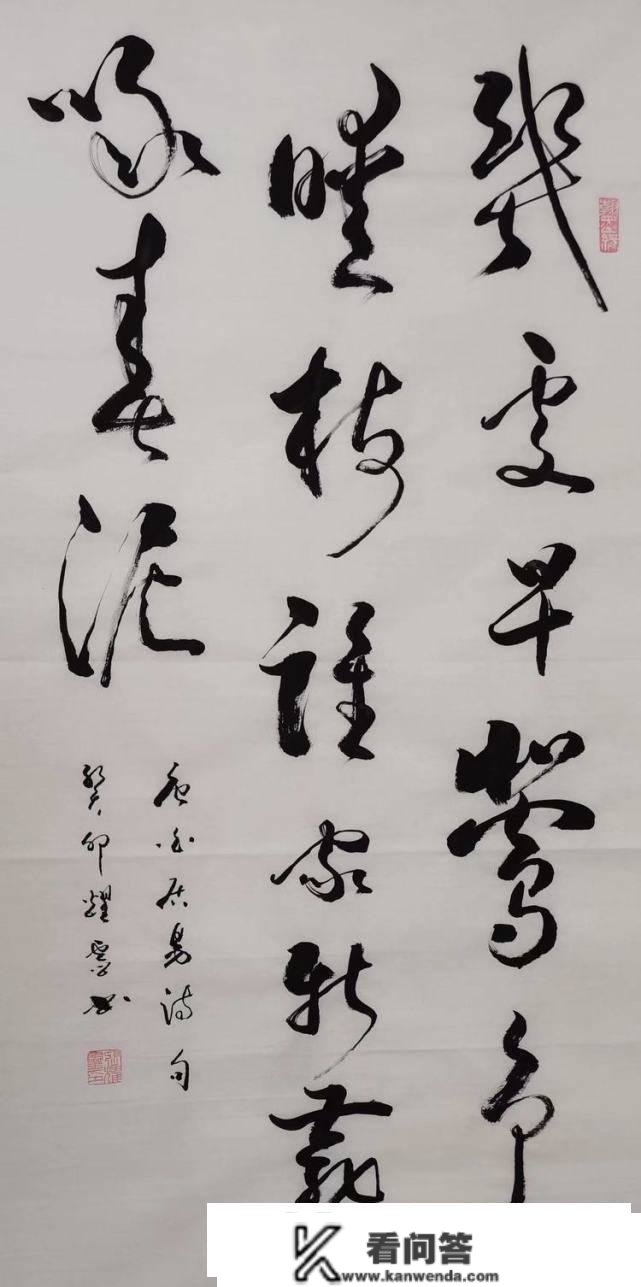 幾處早鶯争
暖樹誰家新燕
啄春泥
唐白居易詩句
癸卯耀雲书
看问答
www.kanwenda.com